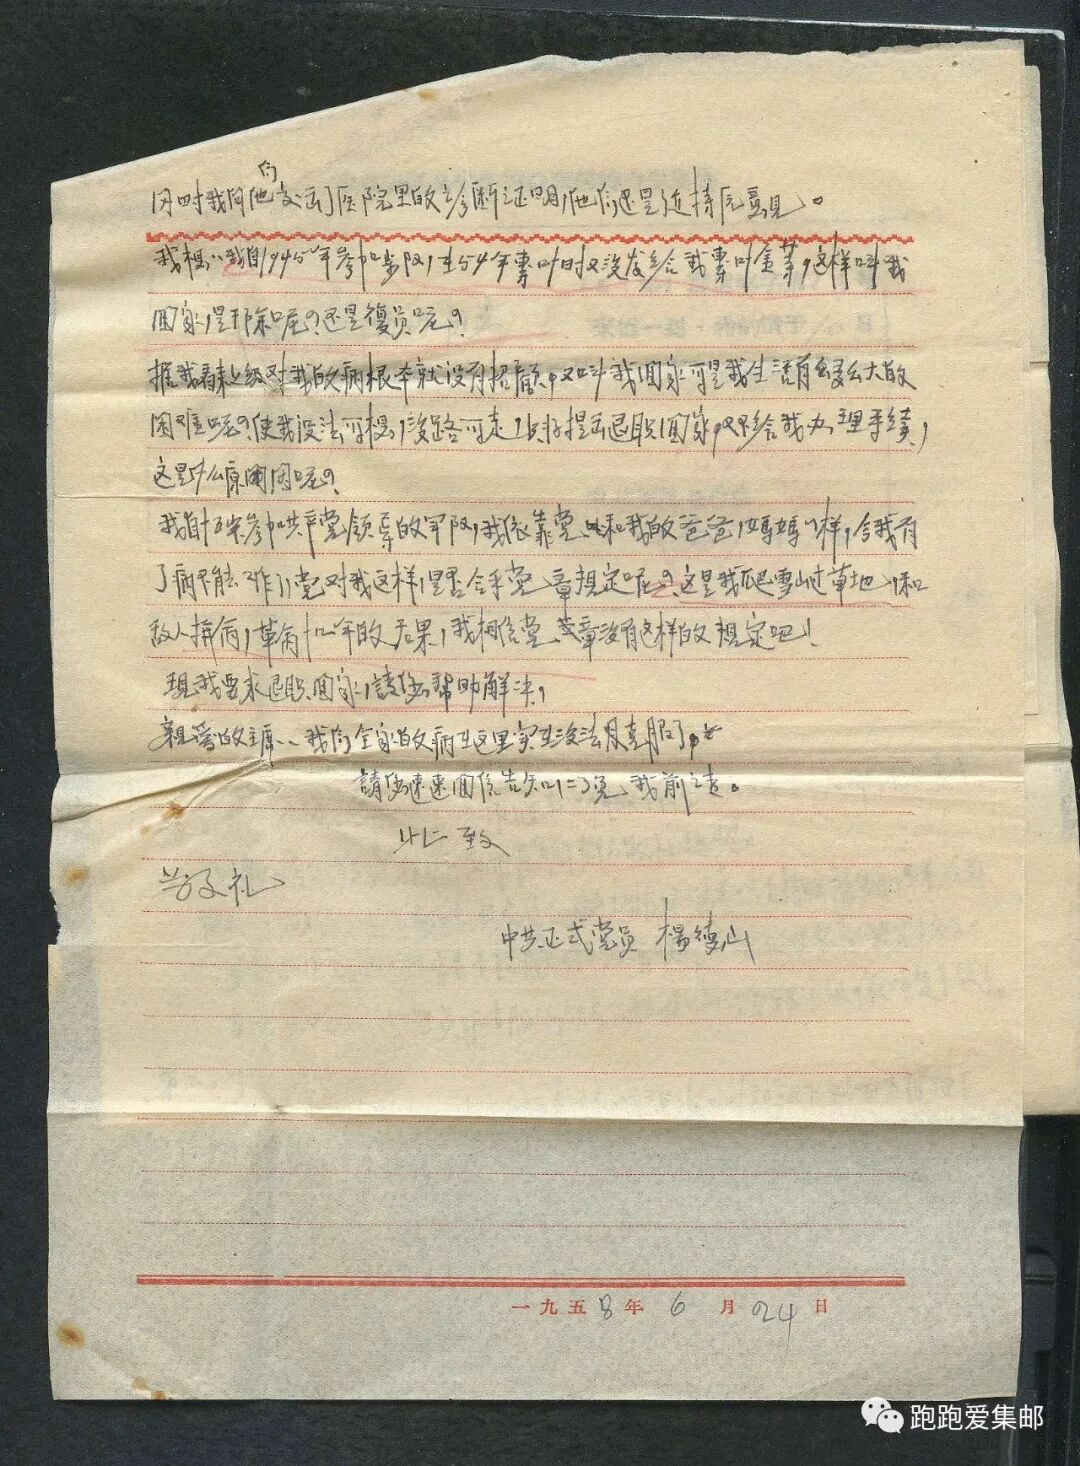 同时我向他们交出了医院里的诊断证明,他们还是近持反意见。
我想:我自1945年参加部队,至54年专叶时又没发给我专叶金等,这样叫我
回家,是开除呢?还是復员呢?
据我看来上级对我的病根本就没有招顧,又叫我回家,可是我生活有多么大的
困难呢?使我没法可想,没路可走,只好提出退职回家,又不给我办理手续,
这是什么原因呢?
我自十五岁参加共产党领导的军队,我依靠党和我的爸爸,媽媽一样,今我有
了病不能工作了,党对我这样,是否合乎党章規定呢?这是我爬雪山过草地,和
敌人拚命,革命十四年的后果,我相信党章没有这样的規定吧!
現我要求退职回家,請您帮助解决,
親愛的主席:我们全家的病在这里实在没法克服了,
請您速速回信告知,以免我前去。
此致
敬礼
中共正式党员 楊德山
一九五8年6月24日
跑跑爱集邮